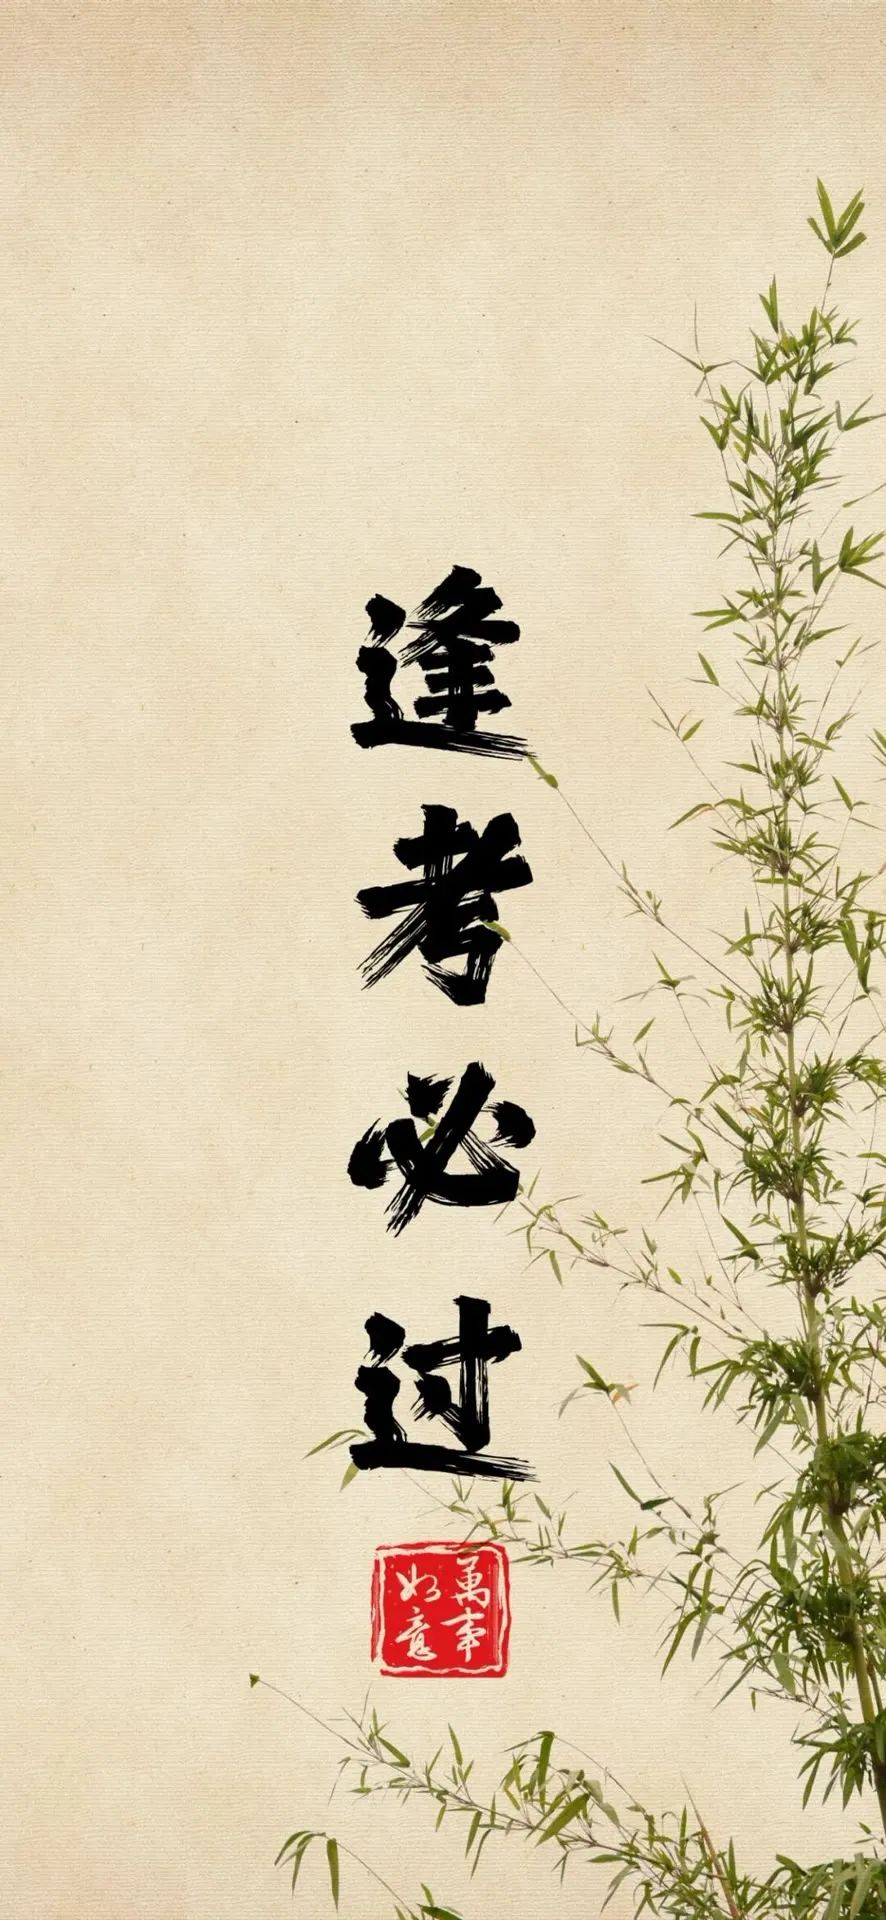 逢考必过
萬事
如意